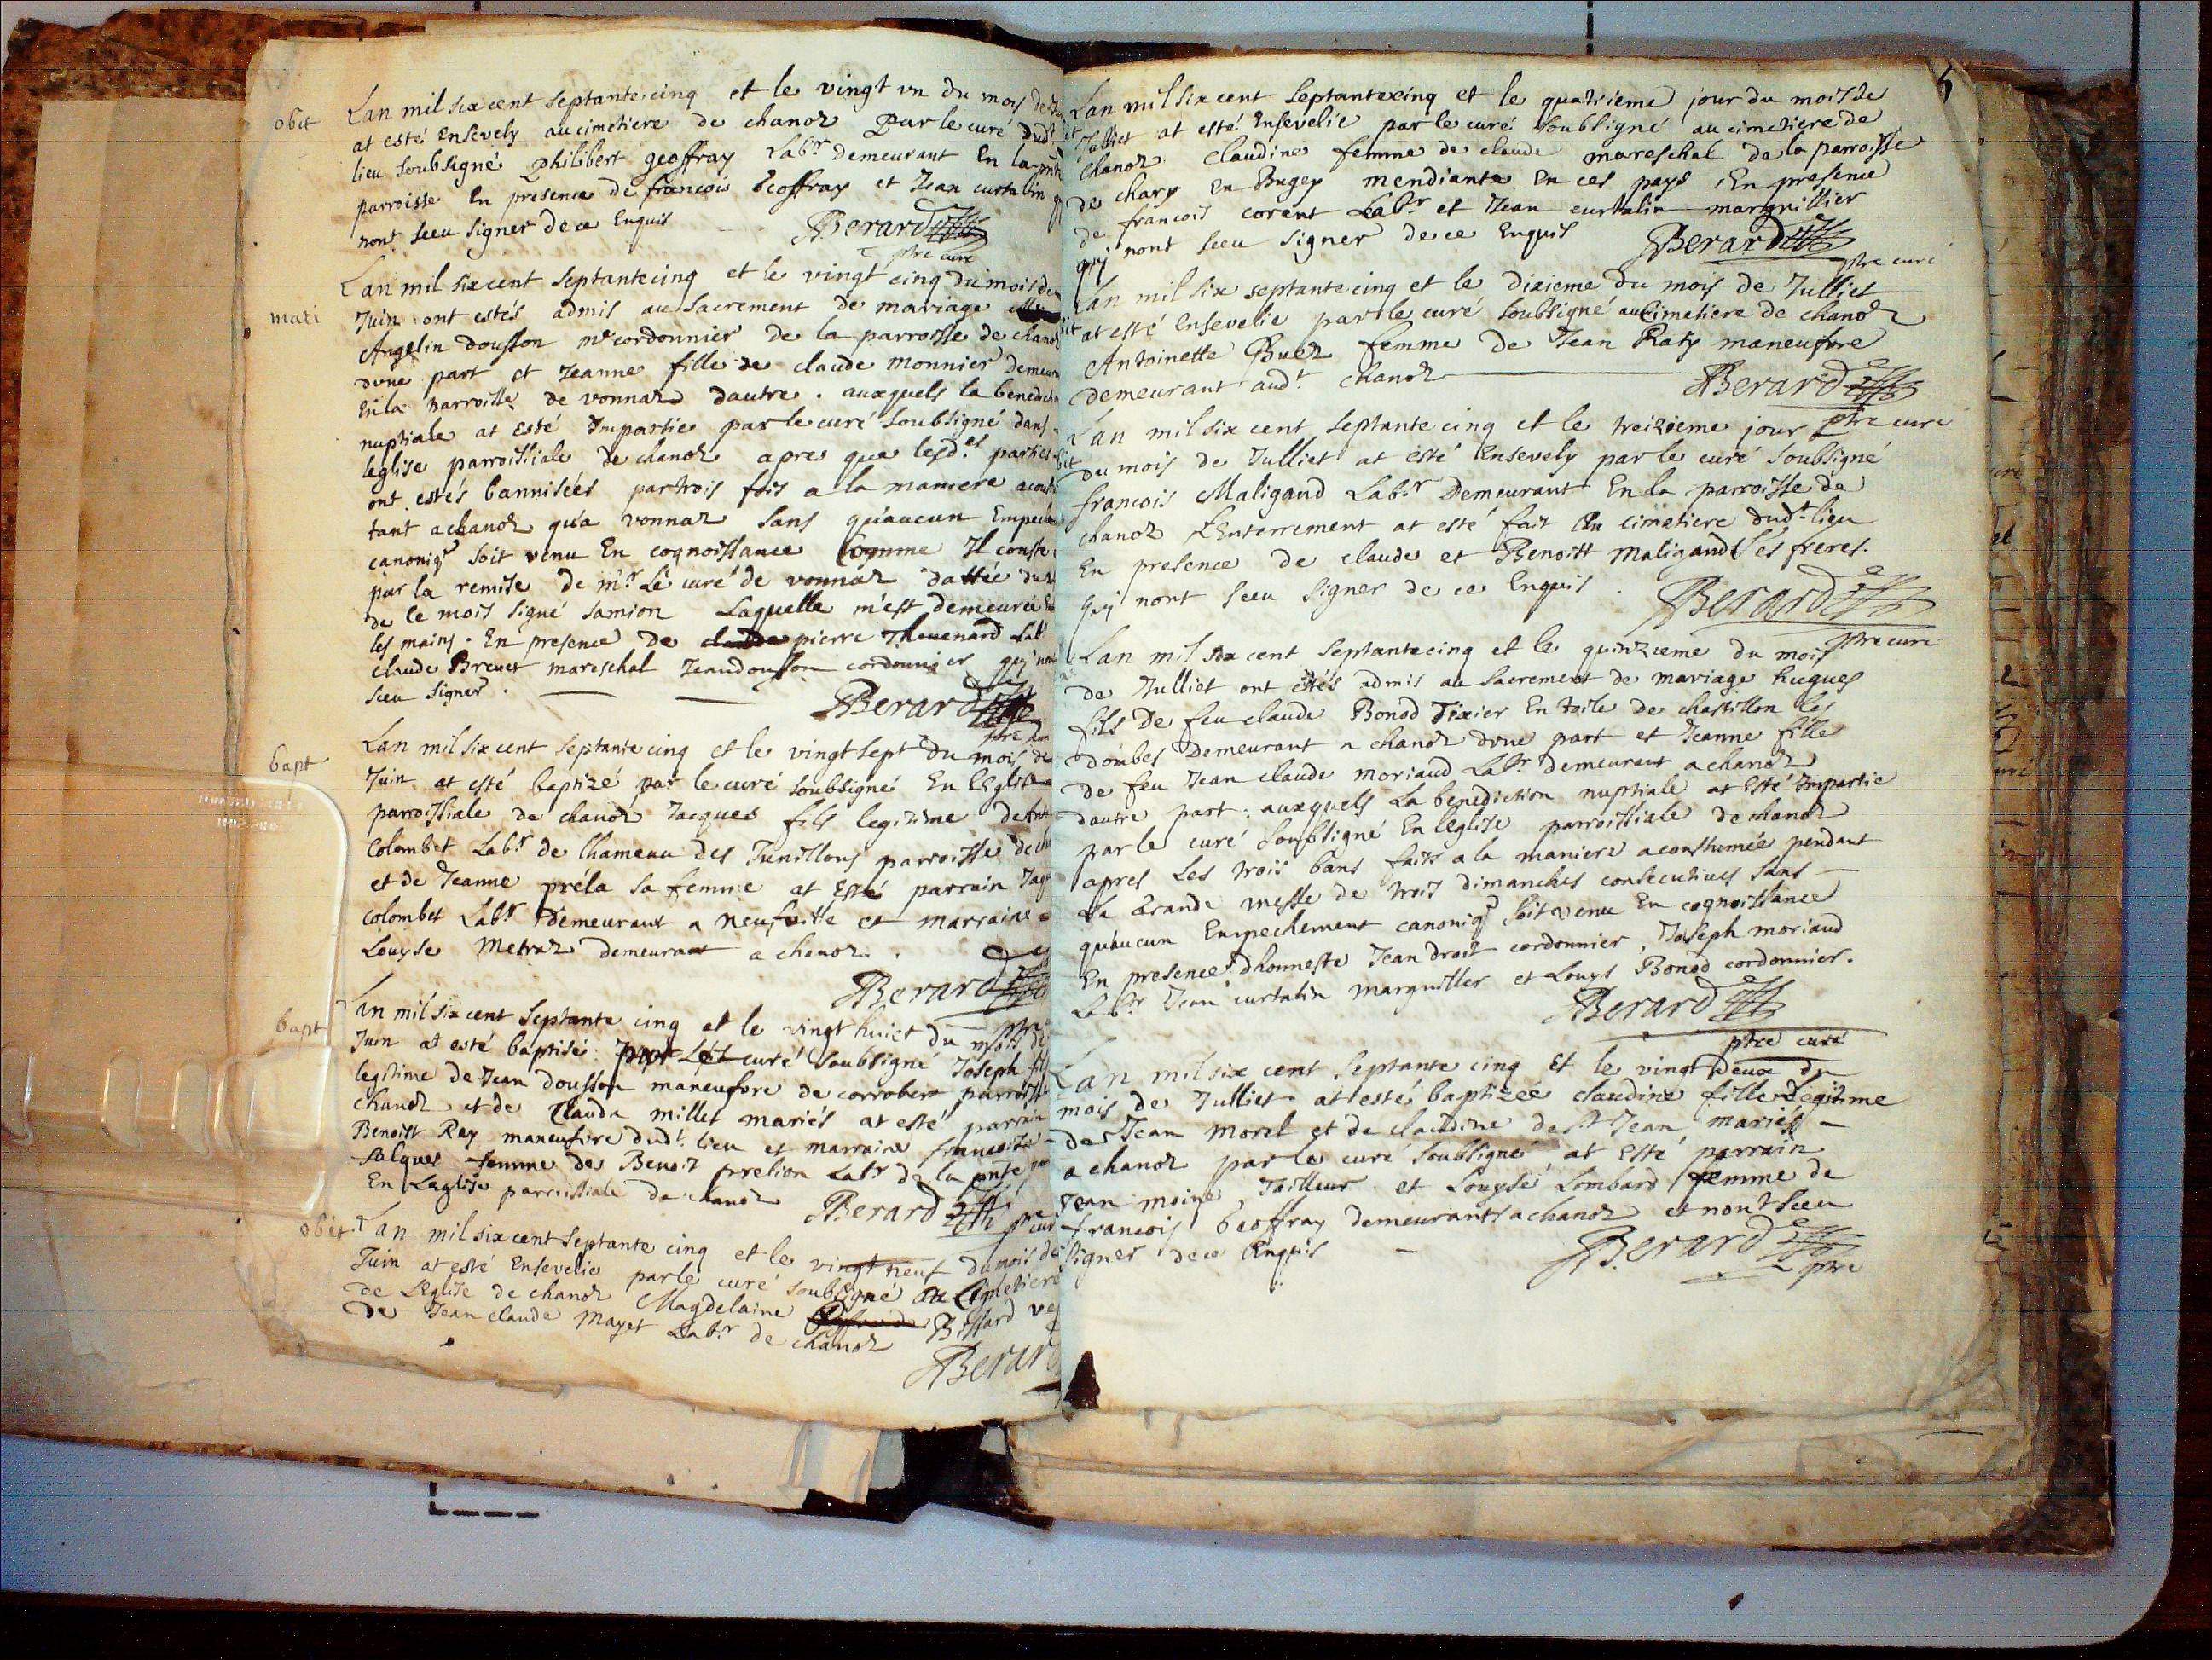 obit
Lan mil six cent septante cinq et le vingt un du moy de
at esté Ensevely au cimetiere de chanoz Par le curé dudt
lieu soubsigné Philibert geoffray Labr demeurant En la pnte
parroisse En presence de francois beoffray et Jean curtalin
nont sceu signer de ce Enquis
Berard
ptre curé
mari
Lan mil six cent septante cinq et le vingt cinq du mois de
Juin ont estés admis au sacrement de mariage
Angelin dousson mr cordonnier de la parroisse de chanoz
dune part et Jeanne fille de claude monnier demeura
En la parroisse de vonnaz dautre . auxquels la benedicti
nuptiale at esté Impartie par le curé soubsigné dans
leglise parroissiale de chanoz apres que lesd.es parties
ont estés bannisées par trois fois a la maniere acous
tant a chanoz qu'a vonnaz sans qu'aucun Empech
canoniq soit venu En cognoissance Comme Il conste
par la remise de mr Le curé de vonnaz dattée du
de ce mois signé samion Laquelle m'est demeurée En
les mains . En presence de claude pierre Thouenard Labr
claude Brevet mareschal Jean dousson cordonnier quy nont
sceu signer .
Berard
ptre curé
bapt
Lan mil six cent septante cinq et le vingt sept du mois de
Juin at esté baptizé par le curé soubsigné En lEglise
parroissiale de chanoz Jacques fils legitime de
colombet Labr de lhameau des Junillons parroisse de
et de Jeanne préla sa femme at Esté parrain Jaq
colombet Labr demeurant a neufville et marraine
Louyse Metraz demeurant a chanoz .
Berard
ptre
bapt
Lan mil six cent septante cinq et le vingt huict du mois de
Juin at esté baptisé par Le curé soubsigné Joseph fils
legitime de Jean dousson maneufvre de corrobert parroisse
chanoz et de Clauda millet mariés at esté parrain
Benoist Rey maneufvre dudt lieu et marraine francoise
salques femme de Benoit prelion Labr de la pnte
En Laglise parroissiale de chanoz
Berard
ptre curé
obit
Lan mil six cent septante cinq et le vingt neuf du mois de
Juin at esté Ensevelie par le curé soubsigné au Cimetiere
de Leglise de chanoz Magdelaine Bissard
de Jean claude Mayet Labr de chanoz
Berard
5
Lan mil six cent septante cinq et le quatrieme jour du mois de
Julliet at esté Ensevelie par le curé soubsigné au cimetiere de
Chanoz Claudine femme de claude mareschal de la parroisse
de chary En Bugey mendiante En ces pays , En presence
de francois corent Labr et Jean curtalin marguillier
quy nont sceu signer de ce Enquis
Berard
ptre curé
Lan mil six septante cinq et le dixieme du mois de Julliet
at esté Ensevelie par le curé soubsigné au Cimetiere de chanoz
Antoinette Buez femme de Jean Raty maneufvre
demeurant audt chanoz
Berard
ptre curé
Lan mil six cent septante cinq et le treizieme jour
du mois de Julliet at esté Ensevely par le curé soubsigné
francois Maligand Labr Demeurant En la parroisse de
chanoz LEnterrement at esté fait Au cimetiere dudt lieu
En presence de claude et Benoist maligand ses freres .
Quy nont sceu signer de ce Enquis .
Berard
ptre curé
Lan mil six cent septante cinq et le quinzieme du mois
de Julliet ont estés admis au sacrement de mariage hugues
fils De feu claude Bonod Tixier En toile de chastillon les
dombes Demeurant a chanoz dune part et Jeanne fille
de feu Jean claude moriaud Labr demeurant a chanoz
dautre part : auxquels La benediction nuptiale at Esté Impartie
par le curé soubsigné En leglise parroissiale de chanoz
apres les trois bans faits a la maniere acoustumée pendant
La Grande messe de trois dimanches consecutives sans
qu'aucun Empechement canoniq soit venu En cognoissance
En presence dhonneste Jean droit cordonnier , Joseph moriaud
Labr Jean curtalin marguiller et Louys Bonod cordonnier .
Berard
ptre curé
Lan mil six cent septante cinq et le vingt deux du
mois de Julliet at esté baptizée claudine fille Legitime
de Jean morel et de claudine de St Jean mariés
a chanoz par le curé soubsigné at Esté parrain
Jean moine , Tailleur et Louyse Lombard femme de
francois beoffray demeurants a chanoz et nont sceu
signer de ce Enquis
Berard
ptre